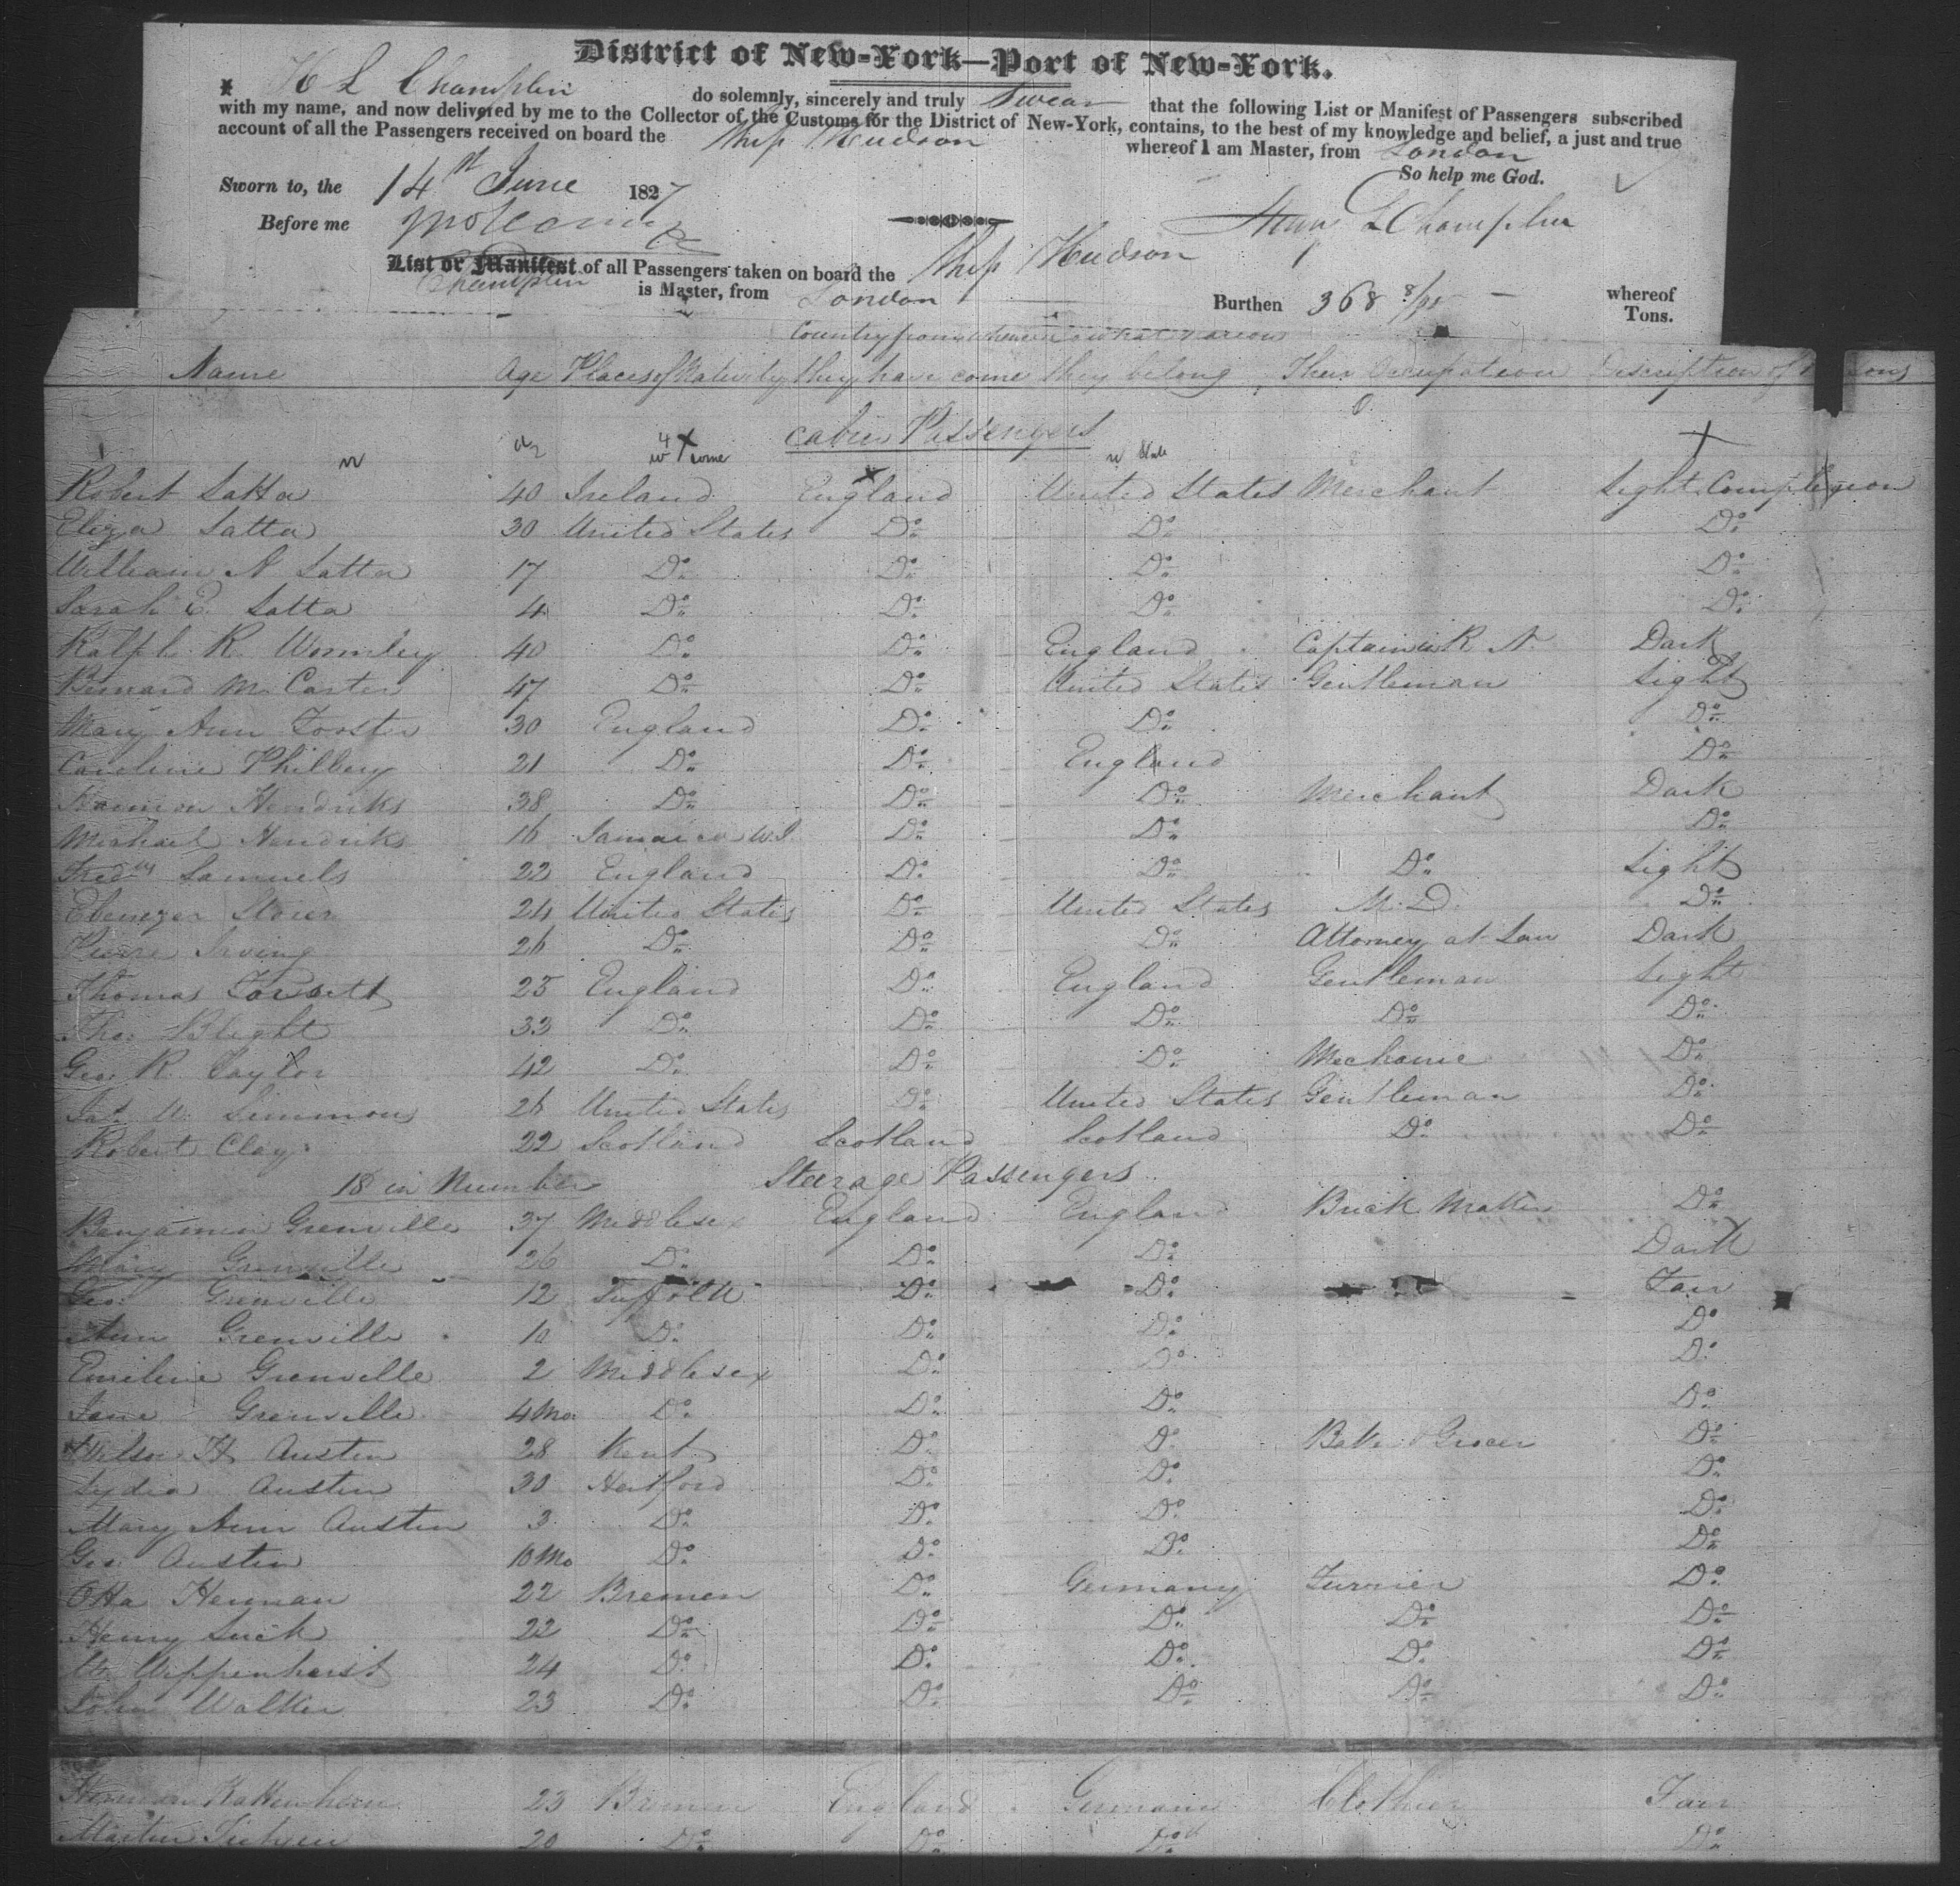 District of New-York—Port of New-York.
H L Champlin do solemnly, sincerely and truly Swear that the following List or Manifest of Passengers subscribed
with my name, and now delivered by me to the Collector of the Customs for the District of New-York, contains, to the best of my knowledge and belief, a just and true
account of all the Passengers received on board the Ship Hudson whereof I am Master, from London
So help me God.
Sworn to, the 14th June 1827
Before me
Henry L Champlin
List or Manifest of all Passengers taken on board the Ship Hudson whereof
Champlin is Master, from London Burthen 368 8/95 Tons.
Name Age Places of Nativity Country from whence they have come to what nation they belong Their Occupation Discription of Persons
Cabin Passengers
Robert Latta 40 Ireland England United States Merchant Light Complexion
Eliza Latta 30 United States Do Do Do
William A Latta 17 Do Do Do Do
Sarah E. Latta 4 Do Do Do Do
Ralph R. Wormley 40 Do Do England Captain R. N. Dark
Bernard M. Carter 47 Do Do United States Gentleman Light
Mary Ann Forster 30 England Do Do Do
Caroline Philbey 21 Do Do England Do
Hendriks 38 Do Do Do Merchant Dark
Michael Hendriks 16 Jamaica W.I. Do Do Do
Samuels 22 England Do Do Do Light
Ebenezer Storer 24 United States Do United States M.D. Do
Pierre Irving 26 Do Do Do Attorney at Law Dark
Thomas 25 England Do England Gentleman Light
Thos Blight 33 Do Do Do Do Do
Geo. R. Taylor 42 Do Do Do Mechanic Do
Jas. W. Simmons 26 United States Do United States Gentleman Do
Robert Clay 22 Scotland Scotland Scotland Do Do
18 in Number Stearage Passengers
Benjamin Grenville 37 Middlesex England England Brick Maker Do
Mary Grenville 26 Do Do Do Dark
Geo. Grenville 12 Suffolk Do Do Fair
Ann Grenville 10 Do Do Do Do
Emiline Grenville 2 Middlesex Do Do Do
Jane Grenville 4 Mo. Do Do Do Do
H Austin 28 Kent Do Do Grocer Do
Lydia Austin 30 Hertford Do Do Do
Mary Ann Austin 3 Do Do Do Do
Geo. Austin 10 Mo Do Do Do Do
Otta Herman 22 Bremen Do Germany Furrier Do
Henry Luck 22 Do Do Do Do Do
Wippenhorst 24 Do Do Do Do Do
John Walker 23 Do Do Do Do Do
Herman 23 Bremen England Germany Clothier Fair
Martin 20 Do Do Do Do